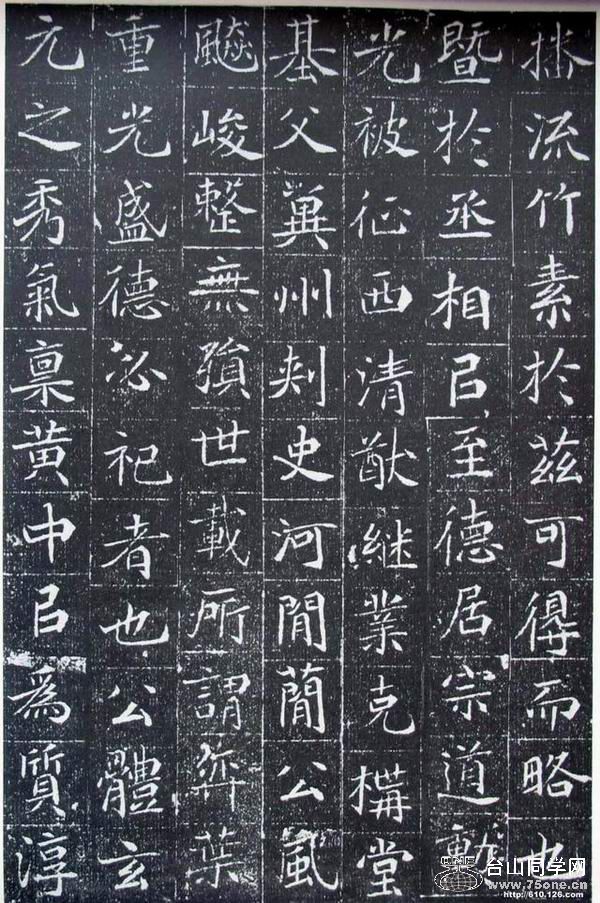 播流竹素於茲可得而略也
暨於丞相㠯至德居宗道勳
光被征西清猷継業克構堂
基父冀州刾史河閒簡公風
飈峻整無殞世載所謂弈葉
重光盛德必祀者也公體玄
元之秀氣稟黄中㠯爲質淳
台山同学网
www.75one.cn
http://610.126.com